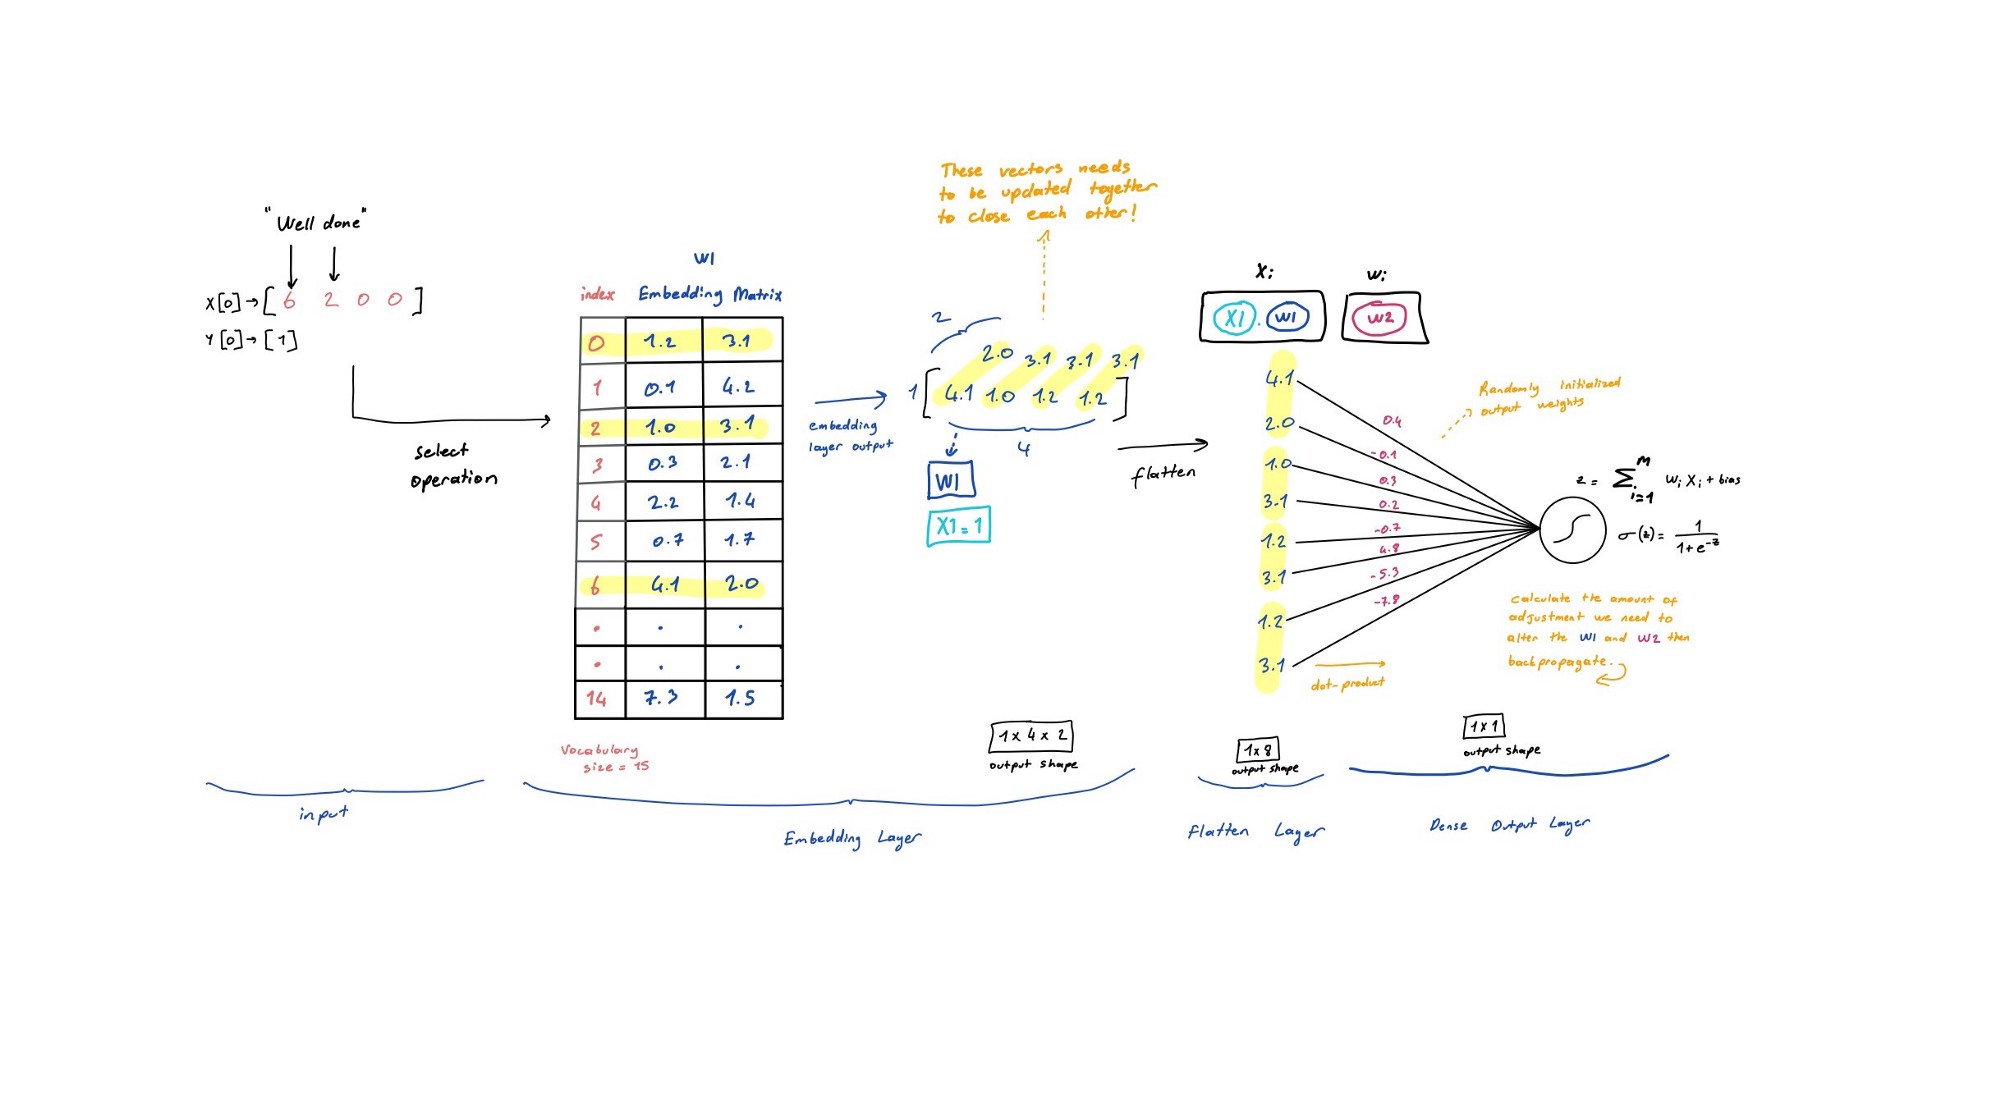 "Well done"
X[0]→[ 6 2 0 0 ]
Y[0]→[1]
select
operation
W1
index Embedding Matrix
0 1.2 3.1
1 0.1 4.2
2 1.0 3.1
3 0.3 2.1
4 2.2 1.4
5 0.7 1.7
6 4.1 2.0
. . .
. . .
14 7.3 1.5
Vocabulary
size = 15
embedding
layer output
These vectors needs
to be updated together
to close each other!
2
2.0 3.1 3.1 3.1
1 [ 4.1 1.0 1.2 1.2 ]
4
W1
X1 = 1
1 x 4 x 2
output shape
flatten
Xi wi
X1 . W1 W2
4.1
2.0
1.0
3.1
1.2
3.1
1.2
3.1
0.4
-0.1
0.3
0.2
-0.7
4.8
-5.3
-7.8
Randomly initialized
output weights
z = Σ i=1 m wi Xi + bias
σ(z) = 1 / 1 + e^-z
calculate the amount of
adjustment we need to
alter the W1 and W2 then
backpropagate.
dot-product
1x8
output shape
1x1
output shape
input
Embedding Layer
Flatten Layer
Dense Output Layer